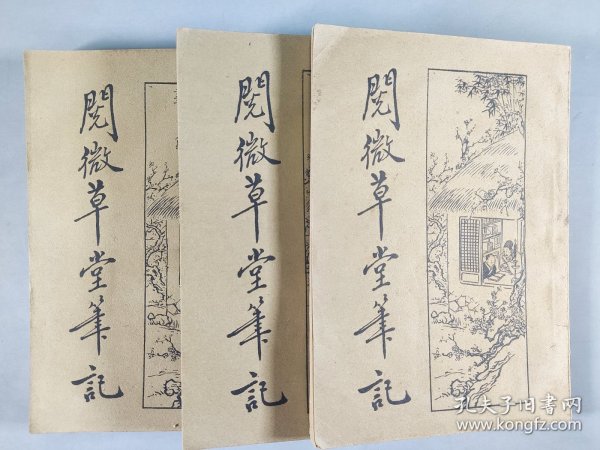 閱微草堂筆記
閱微草堂筆記
閱微草堂筆記
孔夫子旧書网
www.kongfz.com